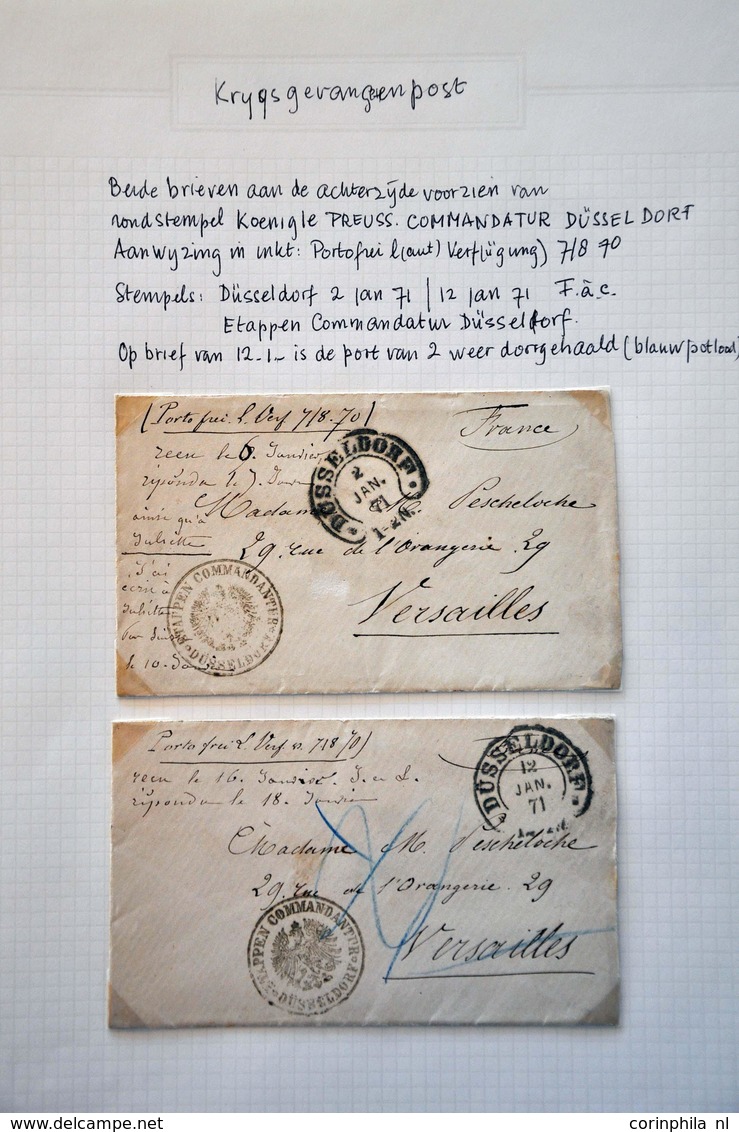 Krygsgevangenenpost
Beide brieven aan de achterzyde voorzien van
rondstempel Koenigle PREUSS. COMMANDATUR DÜSSELDORF
Aanwyzing in inkt: Portofrei l(aut) Verf(ügung) 7/8 70
Stempels: Düsseldorf 2 jan 71 | 12 jan 71 F.à.c.
Etappen Commandatur Düsseldorf.
Op brief van 12-1- is de port van 2 weer doorgehaald (blauwpotlood)
(Porto frei. l. Verf 7/8.70)
France
recu le 6. Janvier
répondu le 7. Janv
ainsi qu'à
Juliette
J'ai
écrit à
Juliette
le 10. Jan
DÜSSELDORF
2
JAN.
71
1-2N.
Madame Pescheloche
29. rue de l'Orangerie. 29
Versailles
ETAPPEN COMMANDANTUR
DÜSSELDORF
(Porto frei l. Verf v. 7/8 70)
recu le 16. Janvier. J. et L.
répondu le 18. Janvier
DÜSSELDORF
12
JAN.
71
Madame M. Pescheloche
29. rue de l'Orangerie. 29
Versailles
ETAPPEN COMMANDANTUR
DÜSSELDORF
delcampe.net
corinphila nl